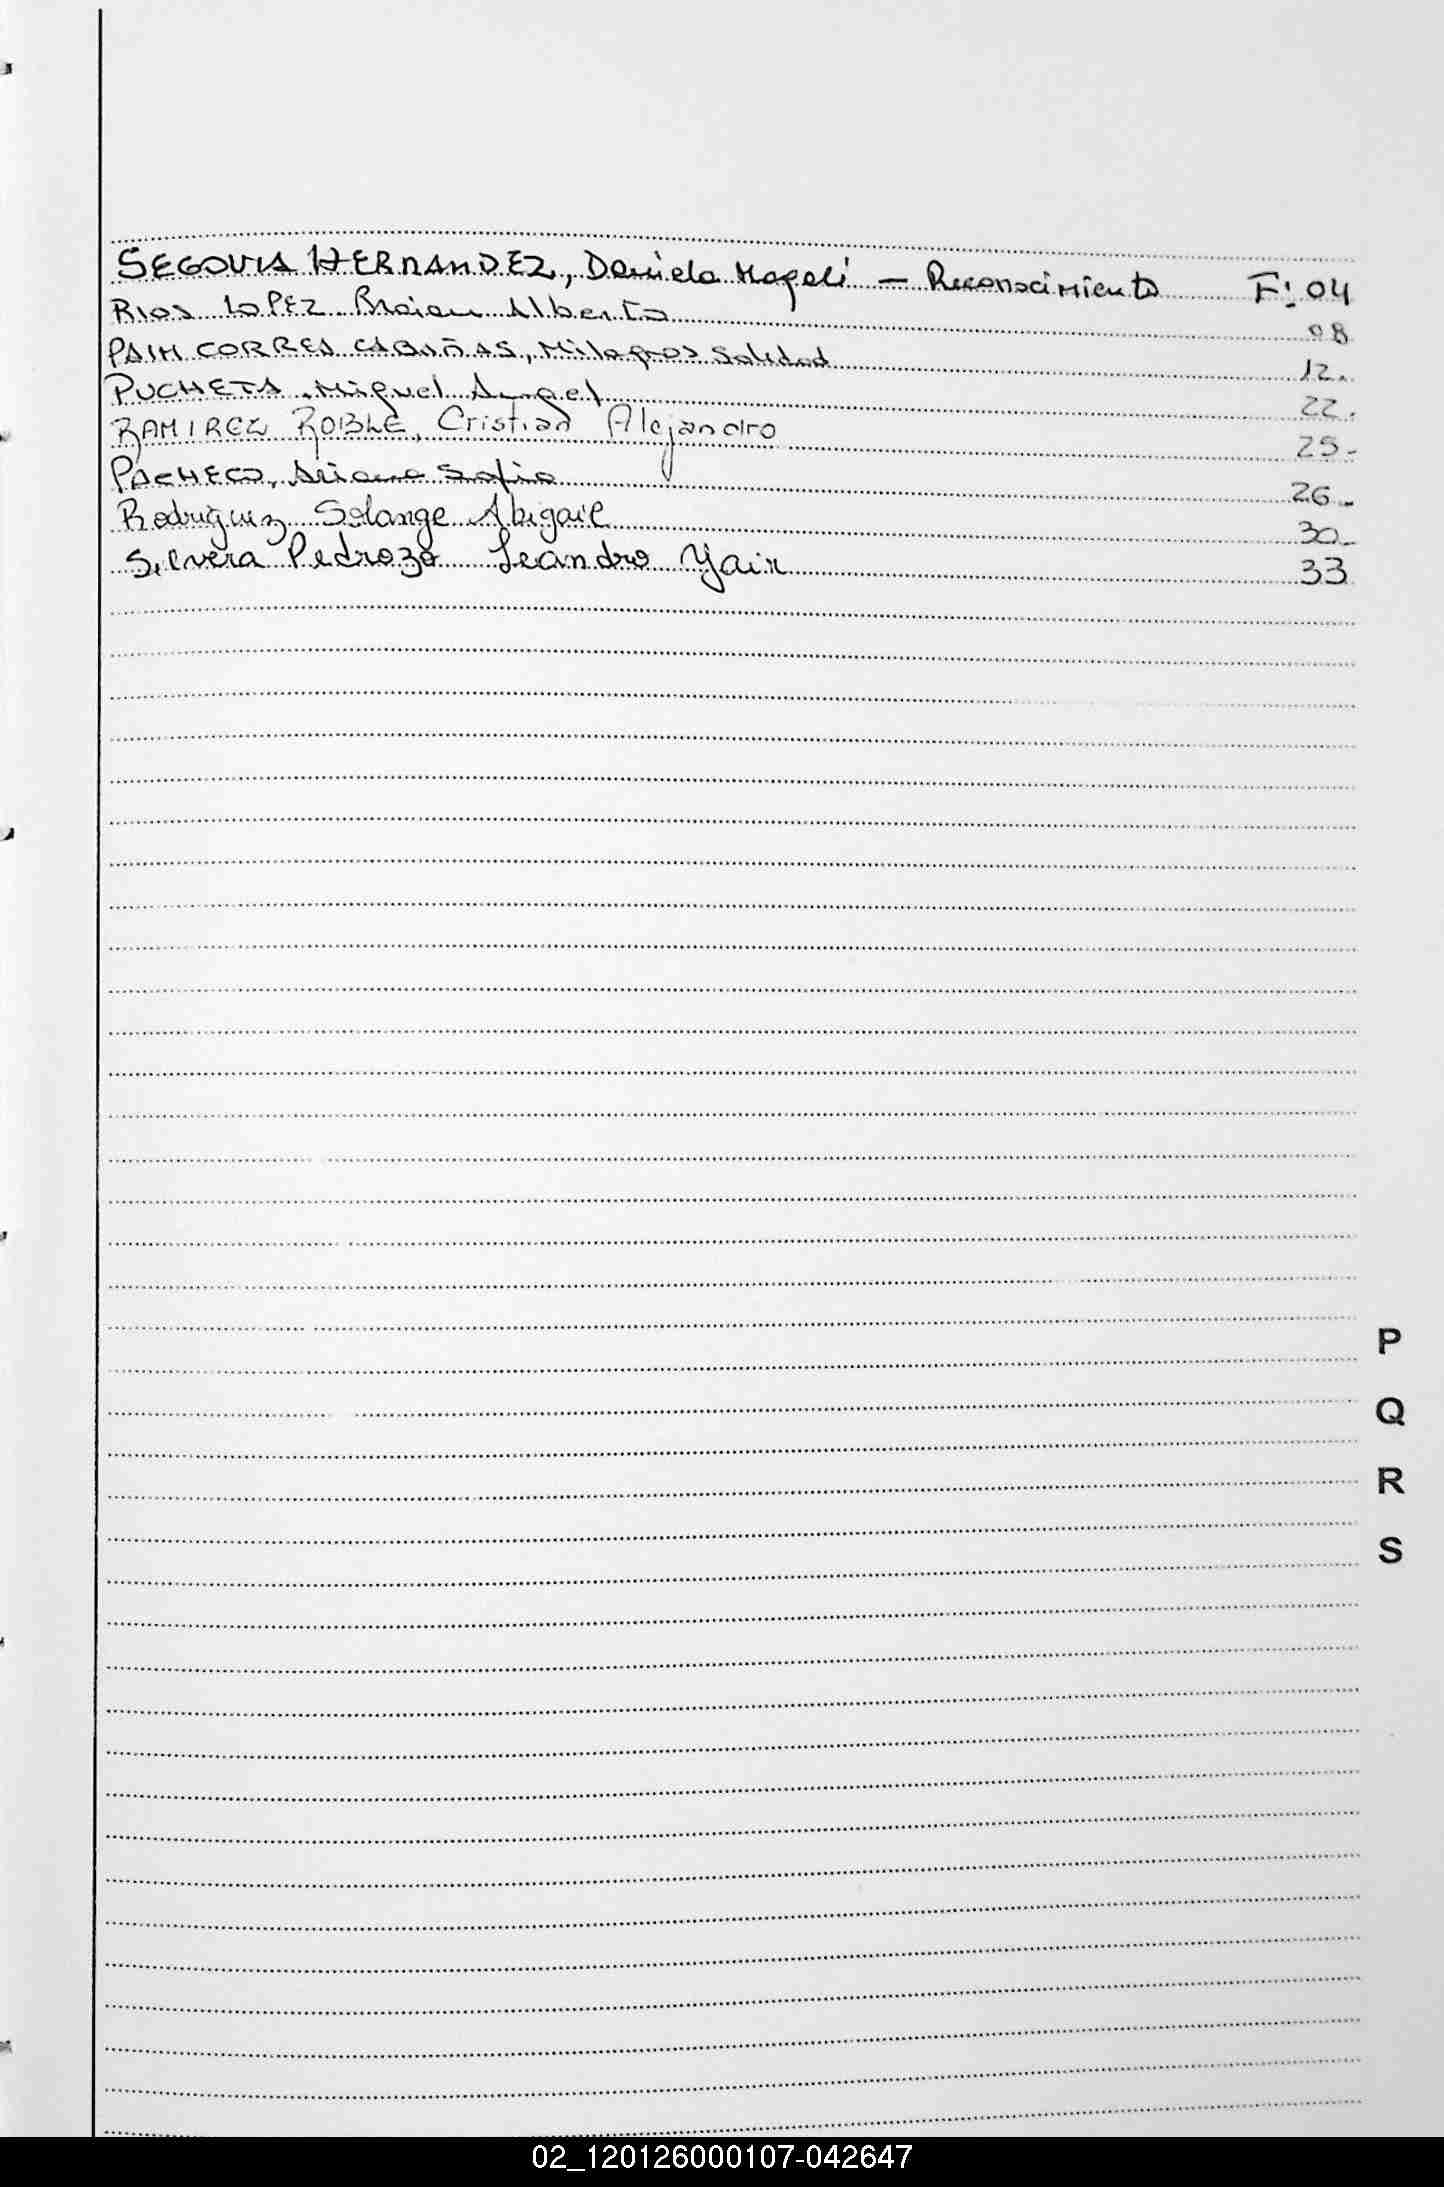 SEGOVIA HERNANDEZ, Daniela Magali — Reconocimiento F: 04
RIOS LOPEZ Braian Alberto 08
PAIM CORREA CABAÑAS, Milagros Soledad 12.
PUCHETA, Miguel Angel 22.
RAMIREZ ROBLE, Cristian Alejandro 25-
PACHECO, Ariana Sofia 26-
Rodriguez Solange Abigail 30-
Silvera Pedrozo Leandro Yair 33
P
Q
R
S
02_120126000107-042647